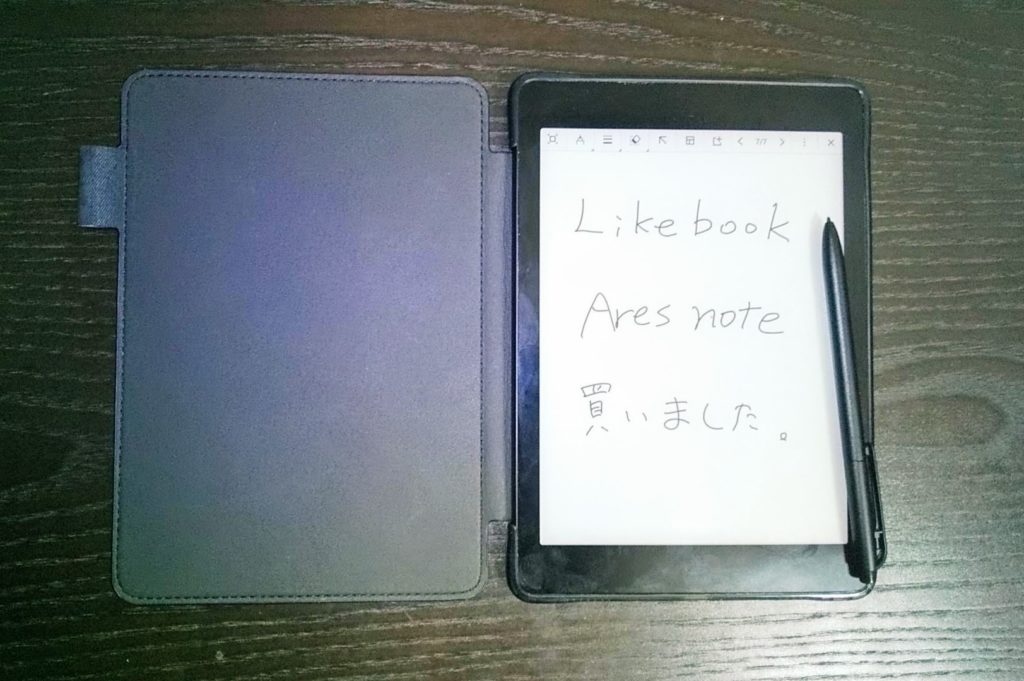 7/7
Likebook
Ares note
買いました。